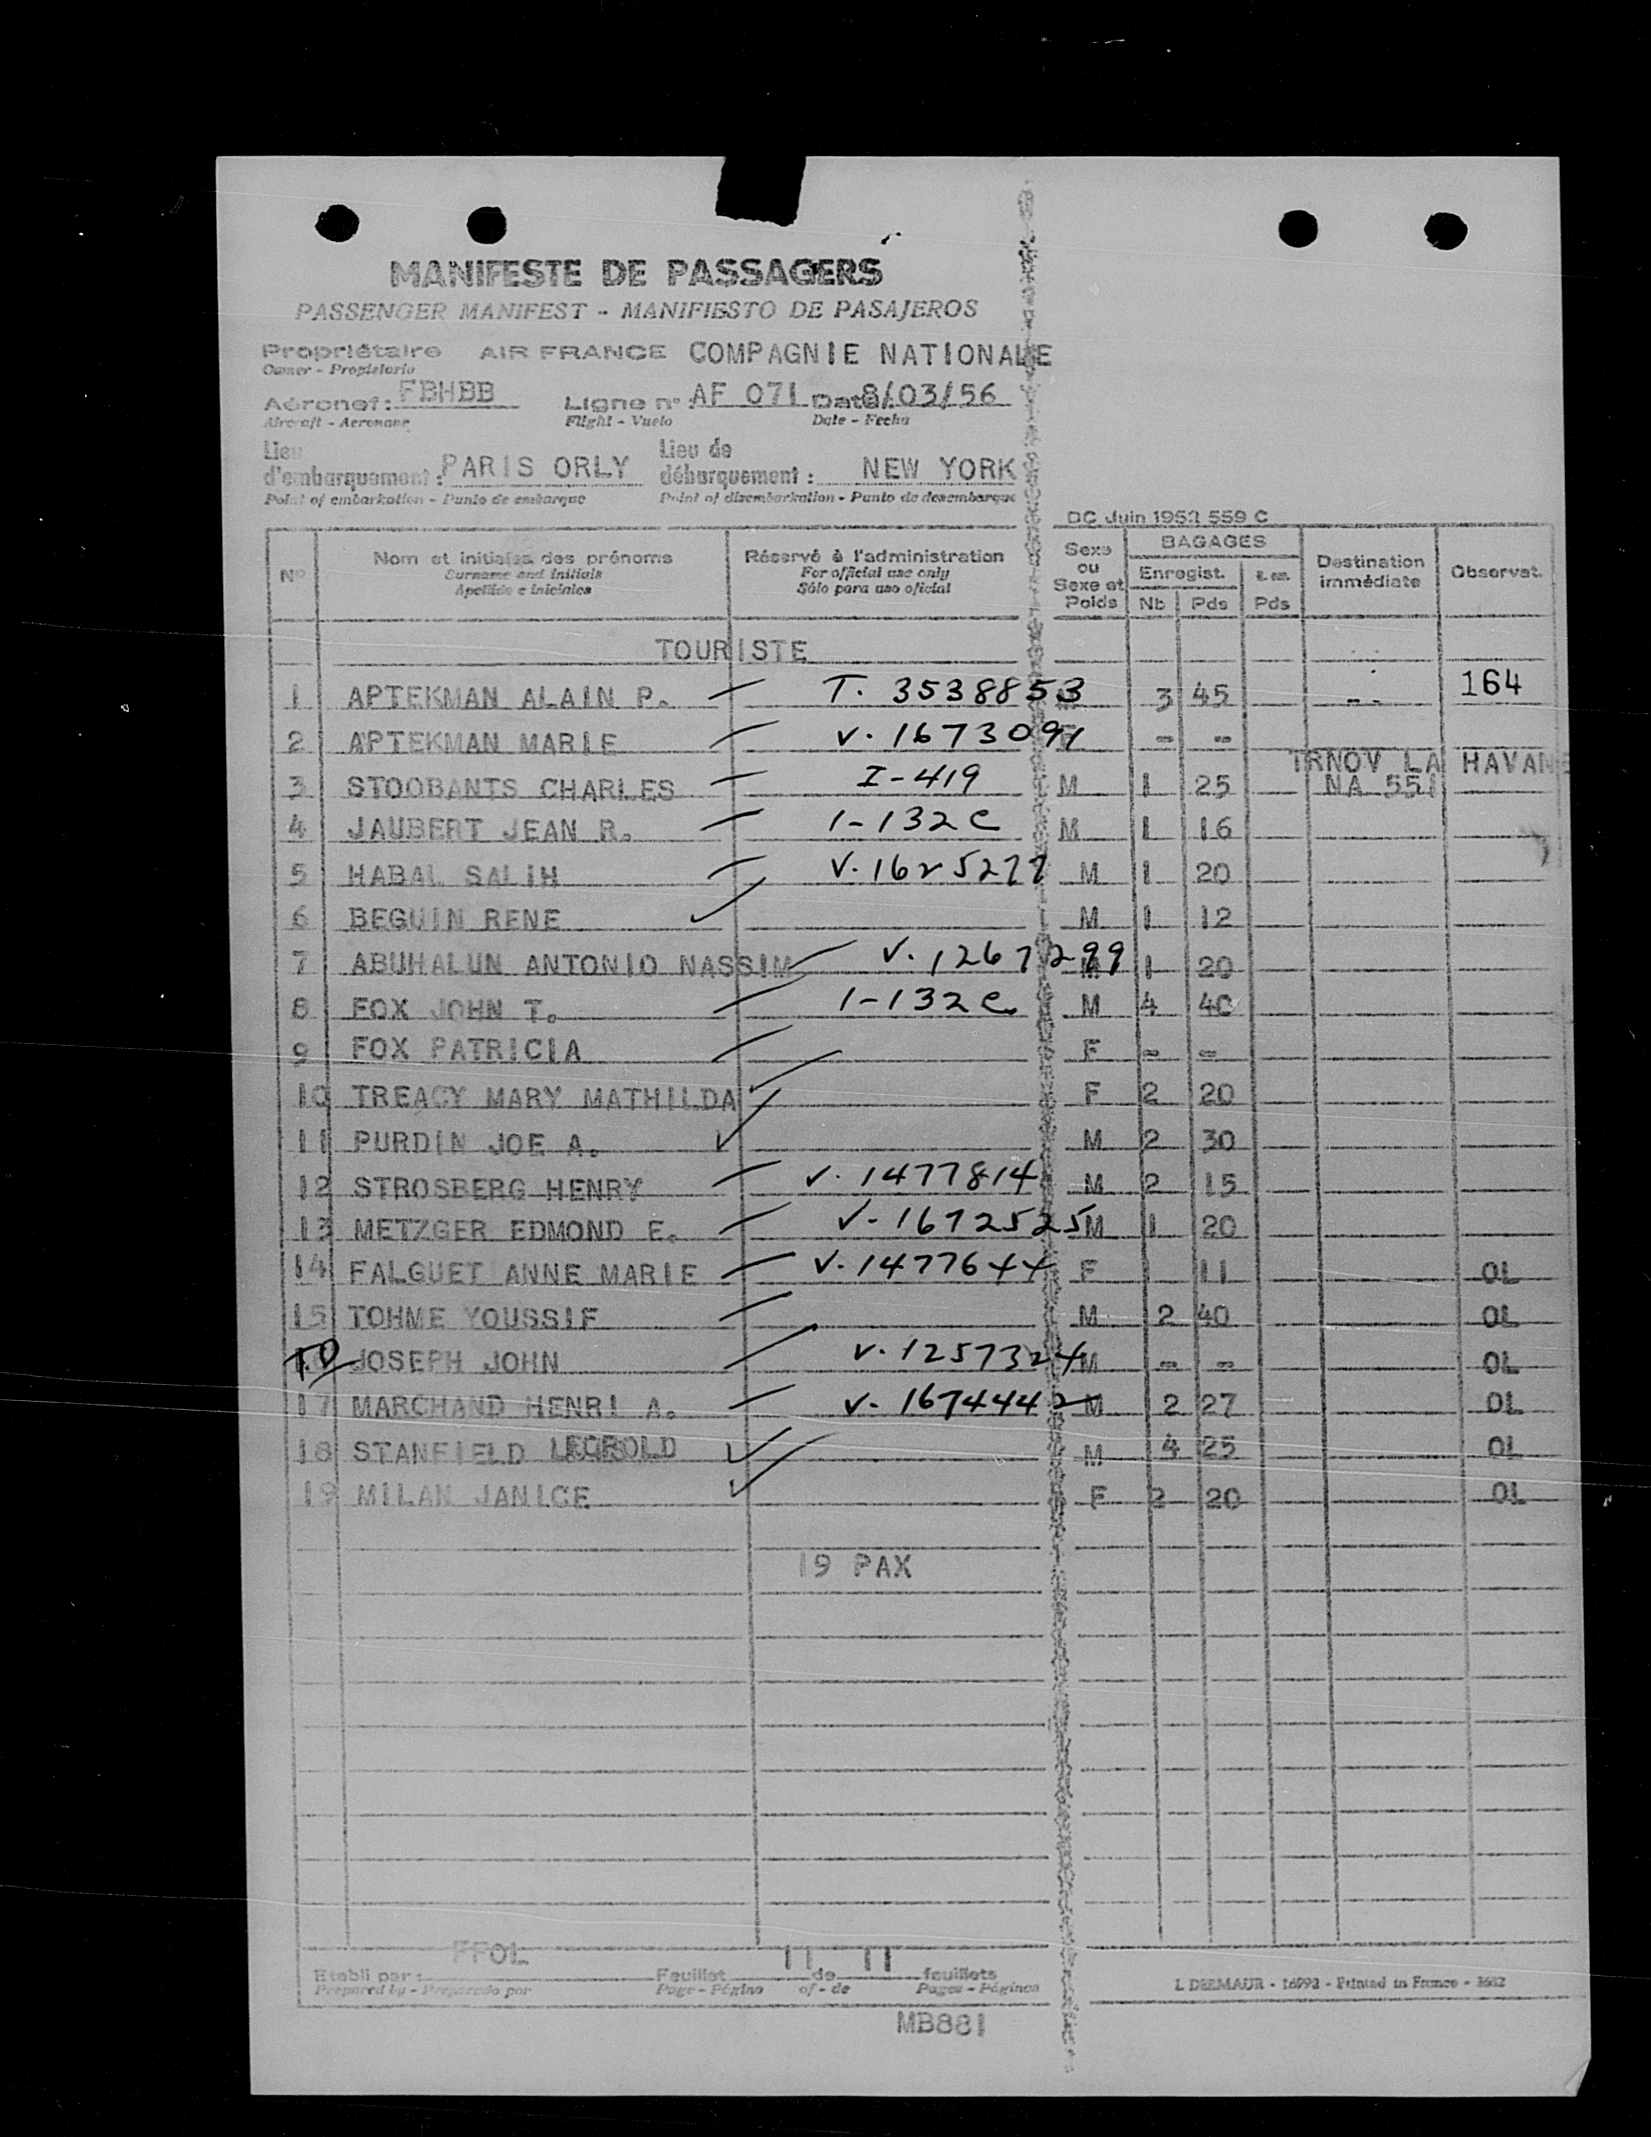 MANIFESTE DE PASSAGERS
PASSENGER MANIFEST - MANIFIESTO DE PASAJEROS
Propriétaire AIR FRANCE COMPAGNIE NATIONALE
Owner - Propietario
Aéronef: FBHBB Ligne n° AF 071 Date 8/03/56
Aircraft - Aeronave Flight - Vuelo Date - Fecha
Lieu d'embarquement: PARIS ORLY Lieu de débarquement: NEW YORK
Point of embarkation - Punto de embarque Point of disembarkation - Punto de desembarque
DC Juin 1953 559 C
N° Nom et initiales des prénoms Réservé à l'administration Sexe ou Sexe et Poids BAGAGES Destination immédiate Observat.
Surname and initials For official use only Enregist.
Apellido e iniciales Sólo para uso oficial Nb Pds Pds
TOURISTE
1 APTEKMAN ALAIN P. T. 3538853 3 45 -- 164
2 APTEKMAN MARIE V. 1673091 - -
3 STOOBANTS CHARLES I-419 M 1 25 TRNOV LA HAVANE NA 551
4 JAUBERT JEAN R. 1-132C M 1 16
5 HABAL SALIH V. 1625277 M 1 20
6 BEGUIN RENE M 1 12
7 ABUHALUN ANTONIO NASSIM V. 1267299 M 1 20
8 FOX JOHN T. 1-132C M 4 40
9 FOX PATRICIA F - -
10 TREACY MARY MATHILDA F 2 20
11 PURDIN JOE A. M 2 30
12 STROSBERG HENRY V. 1477814 M 2 15
13 METZGER EDMOND E. V-1672525 M 1 20
14 FALGUET ANNE MARIE V. 1477644 F 11 OL
15 TOHME YOUSSIF M 2 40 OL
JOSEPH JOHN V. 1257324 M - - OL
17 MARCHAND HENRI A. V. 1674442 M 2 27 OL
18 STANFIELD LEOPOLD M 4 25 OL
19 MILAN JANICE F 2 20 OL
19 PAX
Etabli par: FFOL Feuillet 11 de 11 feuillets
Prepared by - Preparado por Page - Página of - de Pages - Páginas
Printed in France
MB881